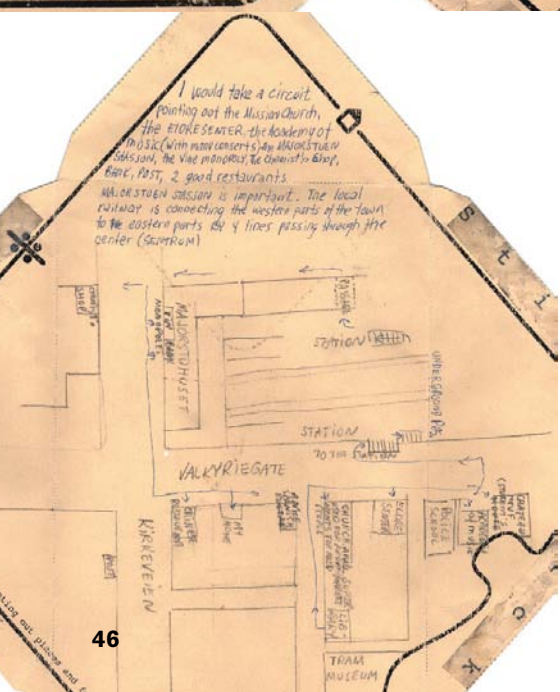 I would take a circuit
pointing out the Mission Church,
the ELDRESENTER, the Academy of
music (with many conserts) an MAJORSTUEN
STASJON, the Vine monopoly, the Chemist's Shop,
BANK, POST, 2 good restaurants.
MAJORSTUEN STASJON is important. The local
railway is connecting the western parts of the town
to the eastern parts by 4 lines passing through the
center (SENTRUM)
S t i
CHEMIST'S
SHOP
MAJORSTUHUSET
VINE
MONOPOLE
BANK
PASSAGE
STATION
UNDERGROUND PASS
STATION
TO THE STATION
VALKYRIEGATE
KIRKEVEIEN
CHINESE
RESTAURANT
MY
HOME
CHURCH AND
ELDRE
SENTER
POLICE
SCHOOL
ACADEMY
OF MUSIC
TRAM
MUSEUM
c k
ting out places and
46